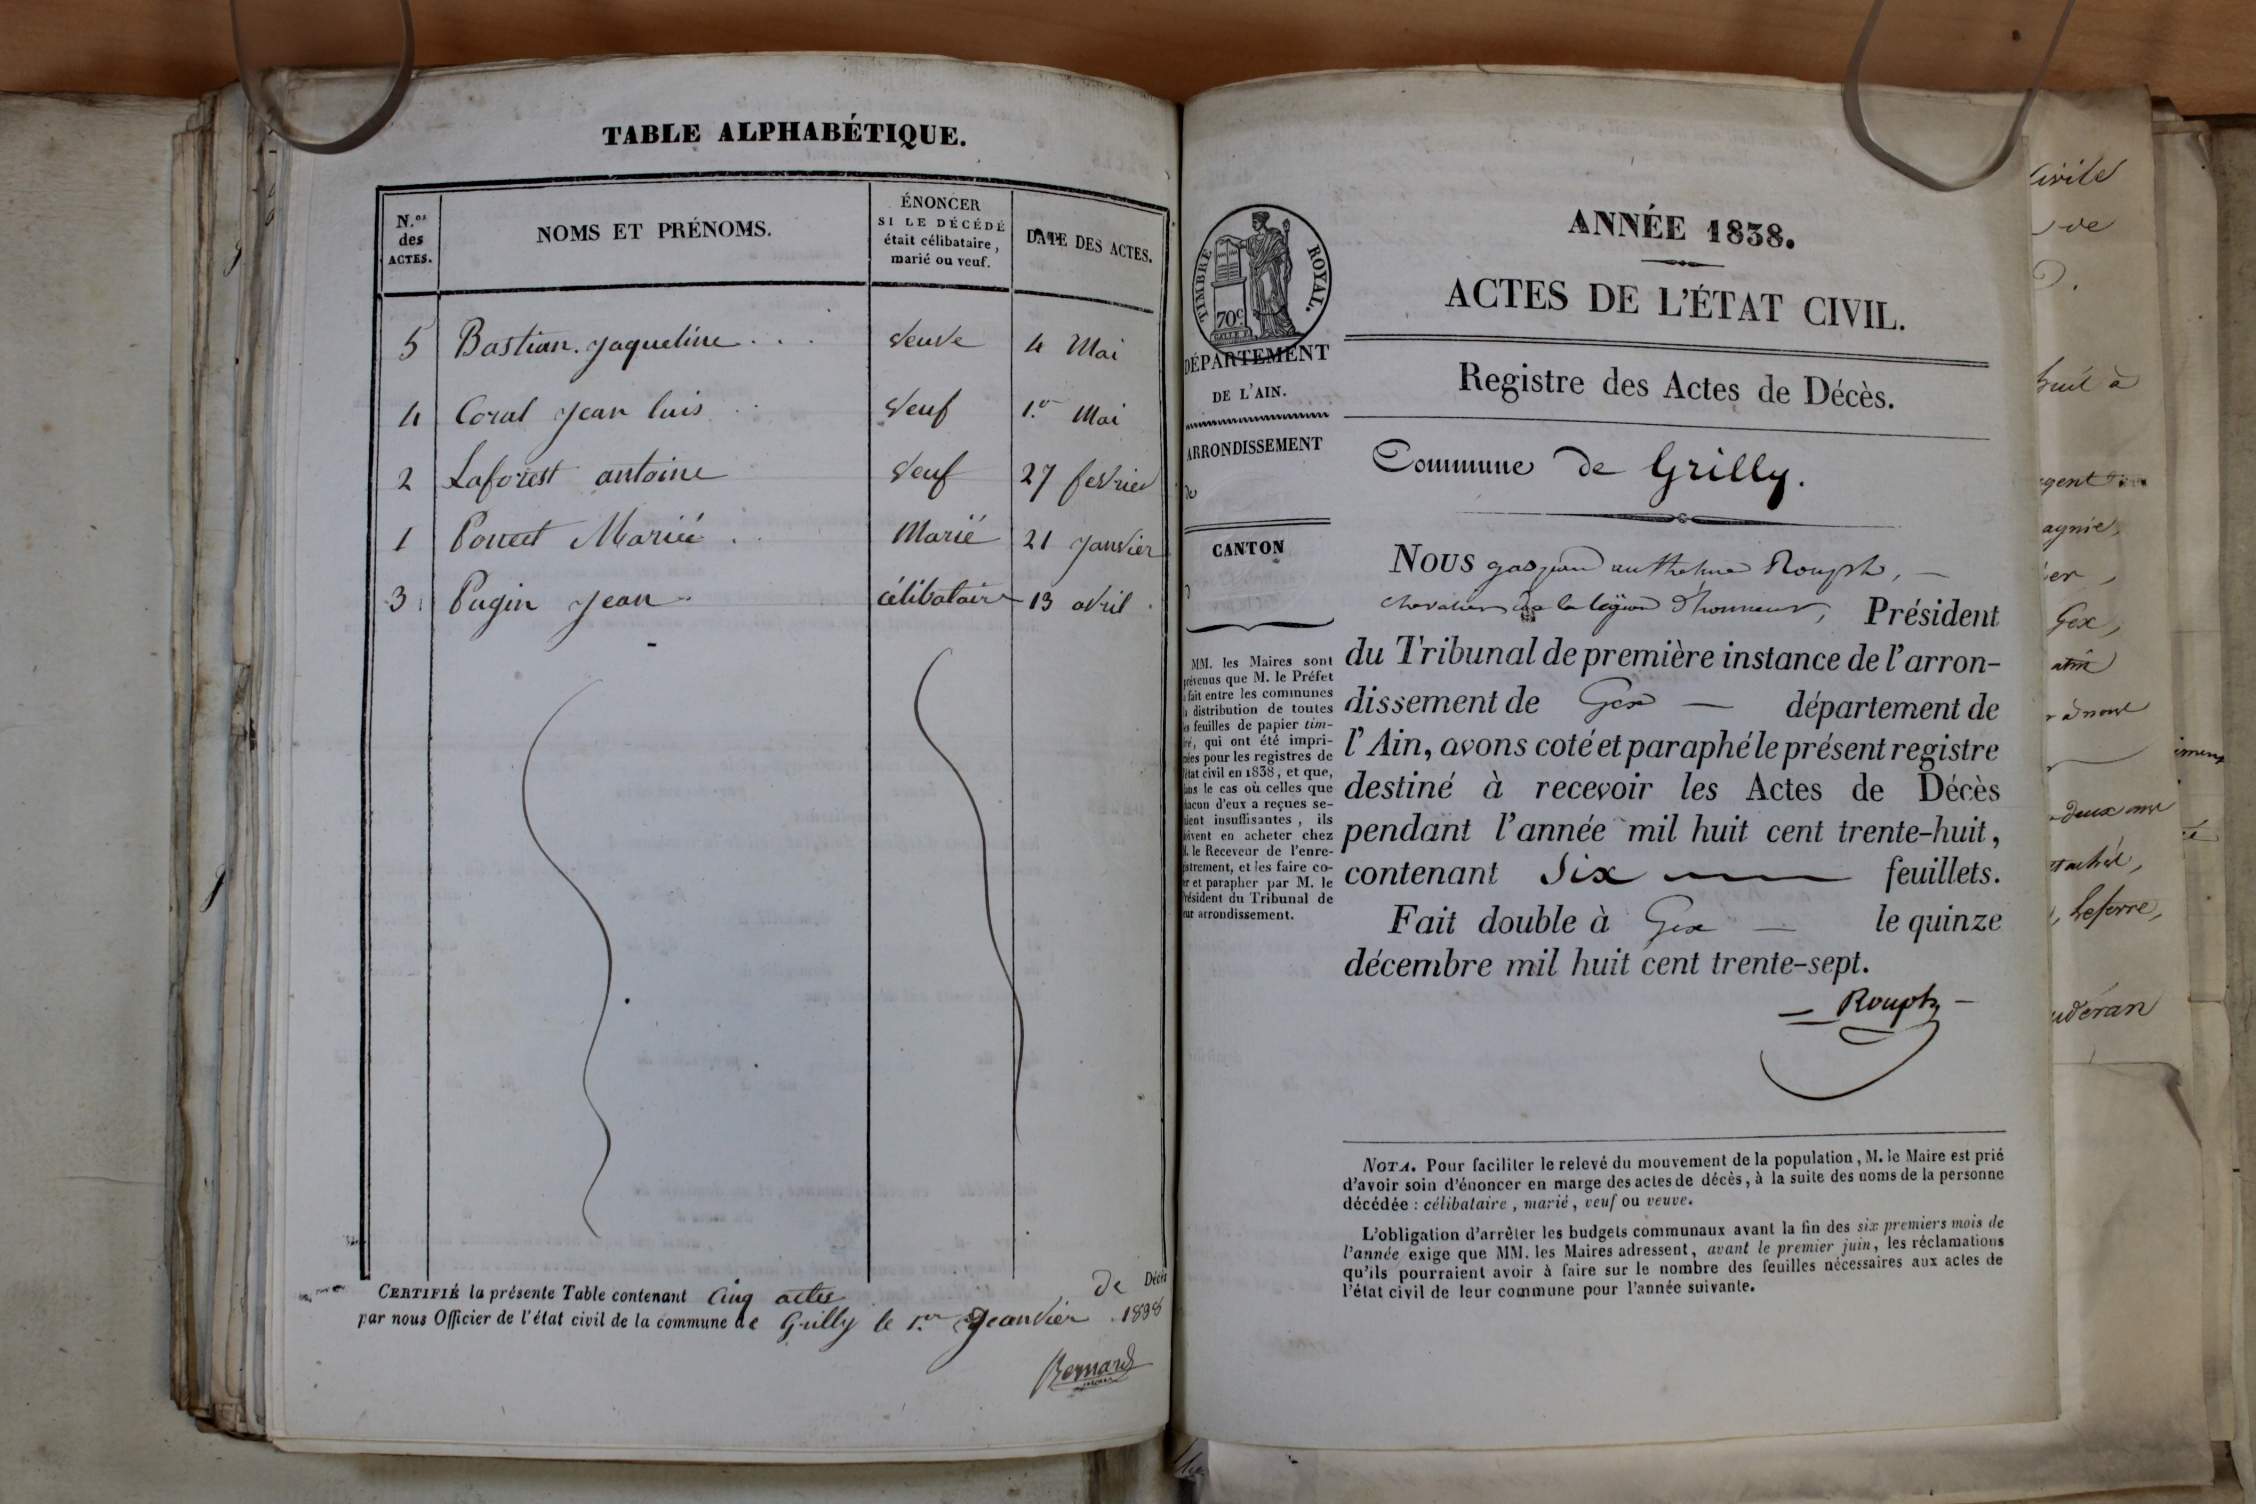 TABLE ALPHABÉTIQUE.
N.os des ACTES.
NOMS ET PRÉNOMS.
ÉNONCER
SI LE DÉCÉDÉ
était célibataire,
marié ou veuf.
DATE DES ACTES.
5 Bastian. Jaqueline . . . veuve 4 Mai
4 Coral Jean luis veuf 1.er Mai
2 Laforest antoine veuf 27 fevrier
1 Marié 21 janvier
3 Pugin Jean célibataire 13 avril
CERTIFIÉ la présente Table contenant Cinq actes de Décès
par nous Officier de l'état civil de la commune de Grilly le 1.er Jeanvier 1838
Bernard
maire
TIMBRE ROYAL.
70c
DÉPARTEMENT
DE L'AIN.
ARRONDISSEMENT
de
CANTON
MM. les Maires sont
prévenus que M. le Préfet
a fait entre les communes
la distribution de toutes
les feuilles de papier tim-
bré, qui ont été impri-
mées pour les registres de
l'état civil en 1838, et que,
dans le cas où celles que
chacun d'eux a reçues se-
raient insuffisantes, ils
doivent en acheter chez
M. le Receveur de l'enre-
gistrement, et les faire co-
ter et parapher par M. le
Président du Tribunal de
leur arrondissement.
ANNÉE 1838.
ACTES DE L'ÉTAT CIVIL.
Registre des Actes de Décès.
Commune de Grilly.
NOUS gaspard anthelme Rouph,
chevalier de la légion d'honneur, Président
du Tribunal de première instance de l'arron-
dissement de Gex — département de
l'Ain, avons coté et paraphé le présent registre
destiné à recevoir les Actes de Décès
pendant l'année mil huit cent trente-huit,
contenant Six feuillets.
Fait double à Gex — le quinze
décembre mil huit cent trente-sept.
Rouph
NOTA. Pour faciliter le relevé du mouvement de la population, M. le Maire est prié
d'avoir soin d'énoncer en marge des actes de décès, à la suite des noms de la personne
décédée : célibataire, marié, veuf ou veuve.
L'obligation d'arrêter les budgets communaux avant la fin des six premiers mois de
l'année exige que MM. les Maires adressent, avant le premier juin, les réclamations
qu'ils pourraient avoir à faire sur le nombre des feuilles nécessaires aux actes de
l'état civil de leur commune pour l'année suivante.
civile
de
huit à
Gex,
deux mr
Leferre,